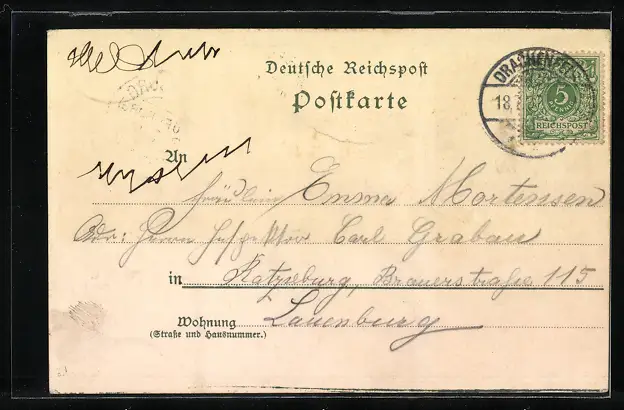 Deutsche Reichspost
Postkarte
DRACHENFELS
18.
5
REICHSPOST
An
Fräulein Emma Mortensen
Adr: Herrn Inspektor Carl Grabau
in Ratzeburg, Brauerstraße 115
Wohnung Lauenburg
(Straße und Hausnummer.)